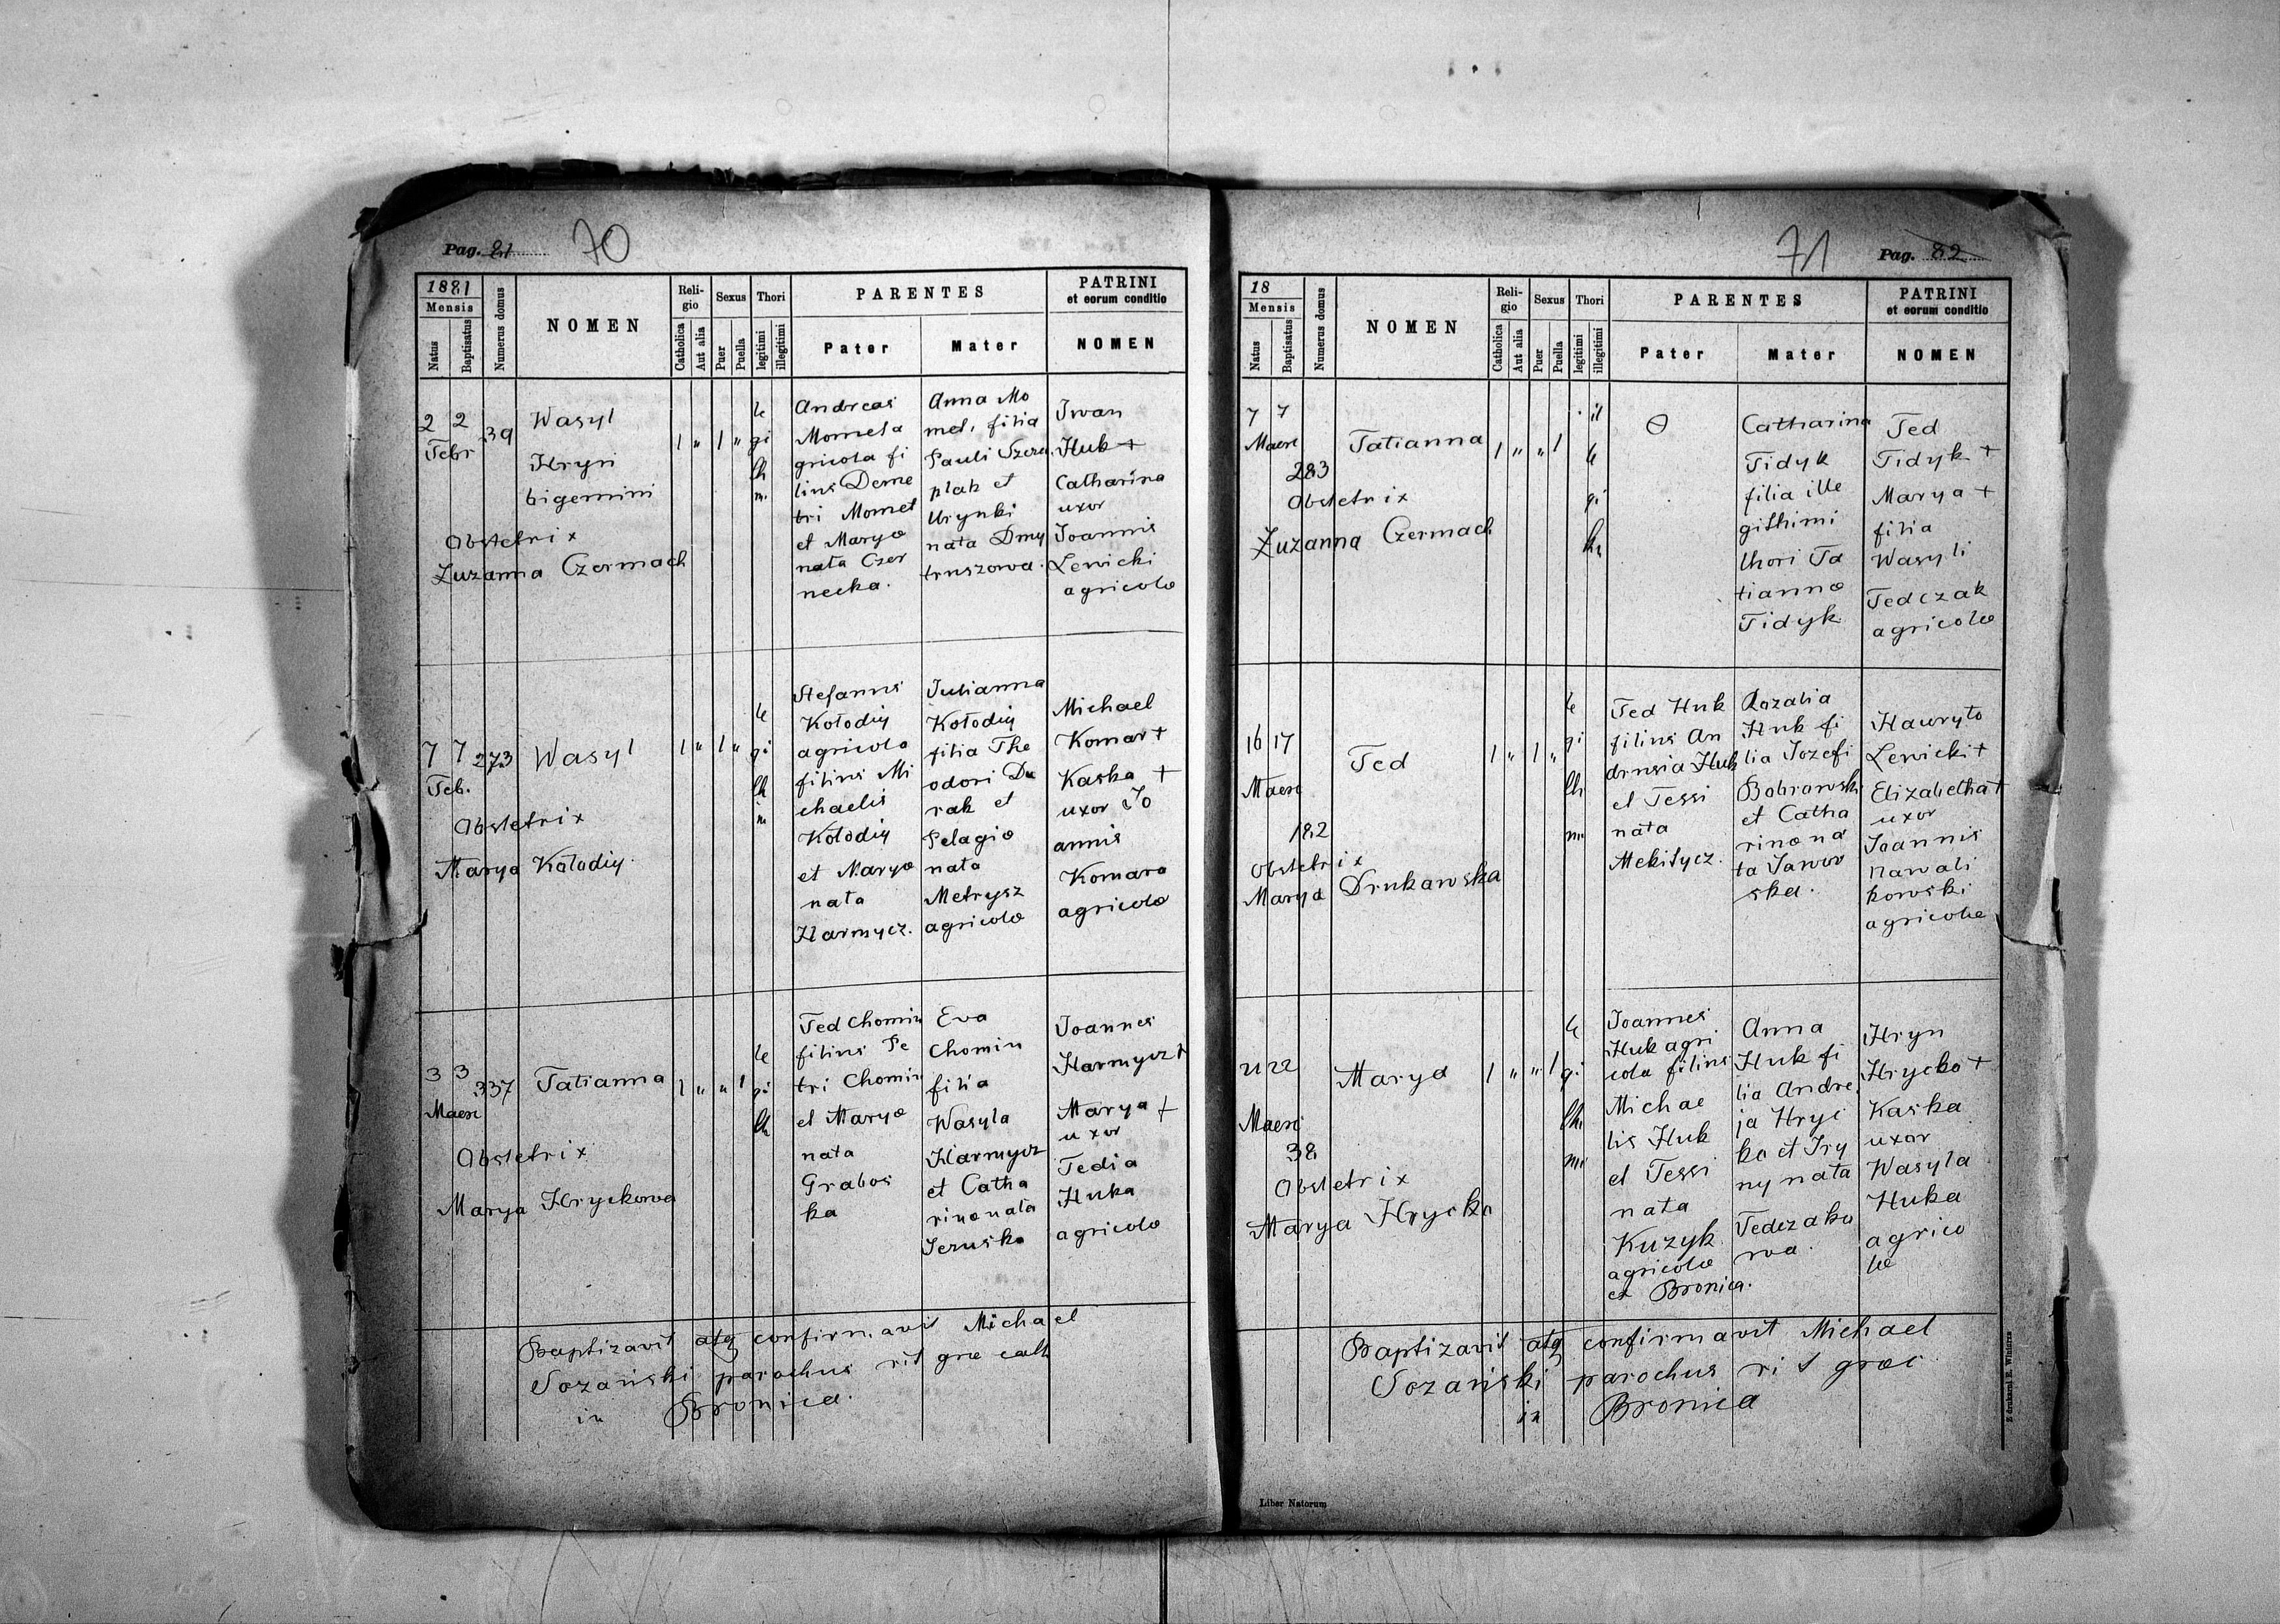 Pag. 81 70
1881
Mensis
Natus
Baptisatus
Numerus domus
NOMEN
Religio
Catholica
Aut alia
Sexus
Puer
Puella
Thori
legitimi
illegitimi
PARENTES
Pater
Mater
PATRINI
et eorum conditio
NOMEN
2 2 39
Febr
Wasyl
Hryn
bigemini
Obstetrix
Zuzanna Czermach
1 " 1 "
le
gi
th
m.
Andreas
Momet a
gricola fi
lius Deme
tri Momet
et Marya
nata Czer
necka.
Anna Mo
met, filia
Pauli Szere
plak et
Urynki
nata Dmy
truszowa.
Iwan
Huk +
Catharina
uxor
Joannis
Lewicki
agricolae
7 7 273
Feb.
Wasyl
Obstetrix
Marya Kołodiy.
1 " 1 "
le
gi
th
i
m
Stefanus
Kołodiy
agricola
filius Mi
chaelis
Kołodiy
et Marya
nata
Harmycz.
Julianna
Kołodiy
filia The
odori Du
rak et
Pelagia
nata
Metrysz
agricolae
Michael
Komar +
Kaska +
uxor Jo
annis
Komara
agricolae
3 3 337
Maerc
Tatianna
Obstetrix
Marya Hryckowa
1 " " 1
le
gi
th
Fed Chomin
filius Pe
tri Chomin
et Marya
nata
Grabos
ka
Eva
Chomin
filia
Wasyla
Harmycz
et Catha
rina nata
Jeruska
Joannes
Harmycz +
Marya +
uxor
Fedia
Huka
agricolae
Baptizavit atq confirmavit Michael
Sozański parochus rit gre cath
in Bronica.
71 Pag. 82
18
Mensis
Natus
Baptisatus
Numerus domus
NOMEN
Religio
Catholica
Aut alia
Sexus
Puer
Puella
Thori
legitimi
illegitimi
PARENTES
Pater
Mater
PATRINI
et eorum conditio
NOMEN
7 7
Maerc
283
Tatianna
Obstetrix
Zuzanna Czermach
1 " " 1
il
le
gi
th
Catharina
Fidyk
filia ille
githimi
thori Ta
tianna
Fidyk
Fed
Fidyk +
Marya +
filia
Wasyli
Fedczak
agricolae
16 17
Maerc
182
Fed
Obstetrix
Marya Drukawska
1 " 1 "
le
gi
th
mi
Fed Huk
filius An
drusia Huk
et Tessi
nata
Mekitycz.
Rozalia
Huk fi
lia Jozefi
Bobrowski
et Catha
rina na
ta Jawor
ska.
Hawryło
Lewicki +
Elizabetha +
uxor
Joannis
Nawali
kowski
agricolae
21 22
Maerc
38
Marya
Obstetrix
Marya Hrycko
1 " " 1
le
gi
th
mi
Joannes
Huk agri
cola filius
Michae
lis Huk
et Tessi
nata
Kuzyk
agricolae
ex Bronica.
Anna
Huk fi
lia Andre
ja Hryc
ko et Iry
ny nata
Fedczako
wa.
Hryn
Hrycko +
Kaska
uxor
Wasyla
Huka
agrico
lae
Baptizavit atq confirmavit Michael
Sozański parochus rit graec
in Bronica
Liber Natorum
Z drukarni E. Winiarza